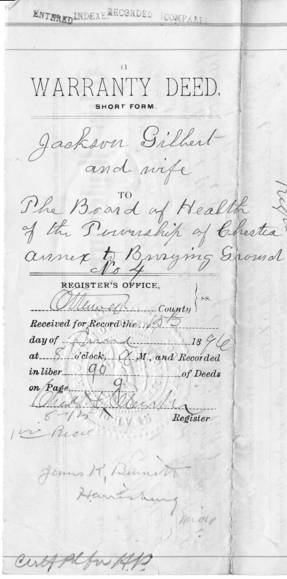 ENTERED INDEXED RECORDED COMPARED
WARRANTY DEED.
SHORT FORM.
Jackson Gilbert
and wife
TO
The Board of Health
of the Township of Chester
annex to Burying Ground
No 4
REGISTER'S OFFICE,
Ottawa County } ss.
Received for Record the
day of 1896
at 8 o'clock, A M., and Recorded
in liber 90 of Deeds
on Page 9
Register
James K. Bennett
Harrisburg
Mich